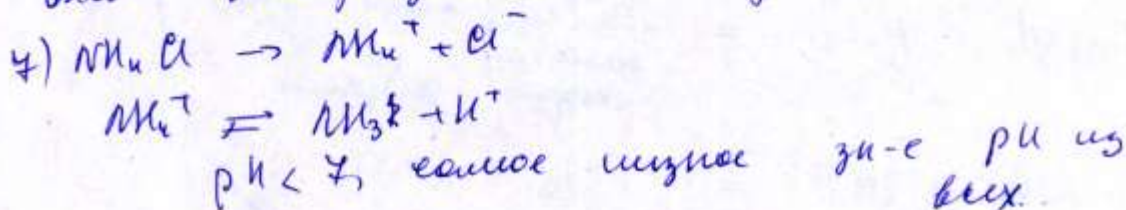 7) NH₄Cl → NH₄⁺ + Cl⁻
NH₄⁺ ⇌ NH₃ + H⁺
pH < 7, самое низкое зн-е pH из
всех.